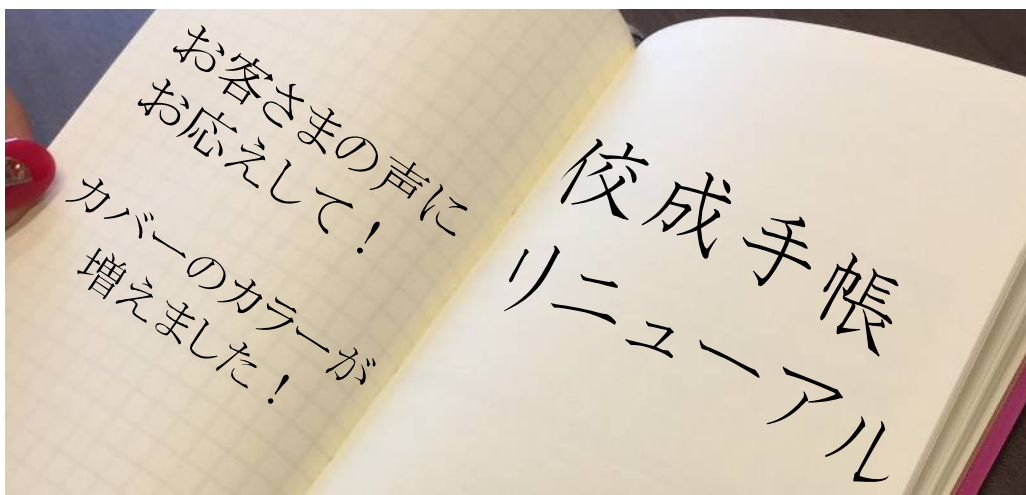 お客さまの声に
お応えして！
カバーのカラーが
増えました！
佼成手帳
リニューアル